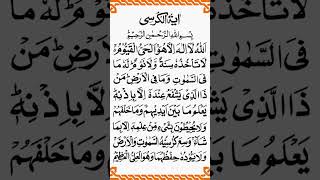 اٰیۃ الکرسی
بِسْمِ اللهِ الرَّحْمٰنِ الرَّحِيْمِ
اَللهُ لَآ اِلٰهَ اِلَّا هُوَ اَلْحَیُّ الْقَیُّوْمُ
لَا تَاْخُذُهٗ سِنَةٌ وَّلَا نَوْمٌ لَهٗ مَا
فِی السَّمٰوٰتِ وَمَا فِی الْاَرْضِ مَنْ
ذَا الَّذِیْ یَشْفَعُ عِنْدَهٗٓ اِلَّا بِاِذْنِهٖ
یَعْلَمُ مَا بَیْنَ اَیْدِیْهِمْ وَمَا خَلْفَهُمْ
وَلَا یُحِیْطُوْنَ بِشَیْءٍ مِّنْ عِلْمِهٖٓ اِلَّا بِمَا
شَآءَ وَسِعَ كُرْسِیُّهُ السَّمٰوٰتِ وَالْاَرْضَ
وَلَا یَئُوْدُهٗ حِفْظُهُمَا وَهُوَ الْعَلِیُّ الْعَظِیْمُ